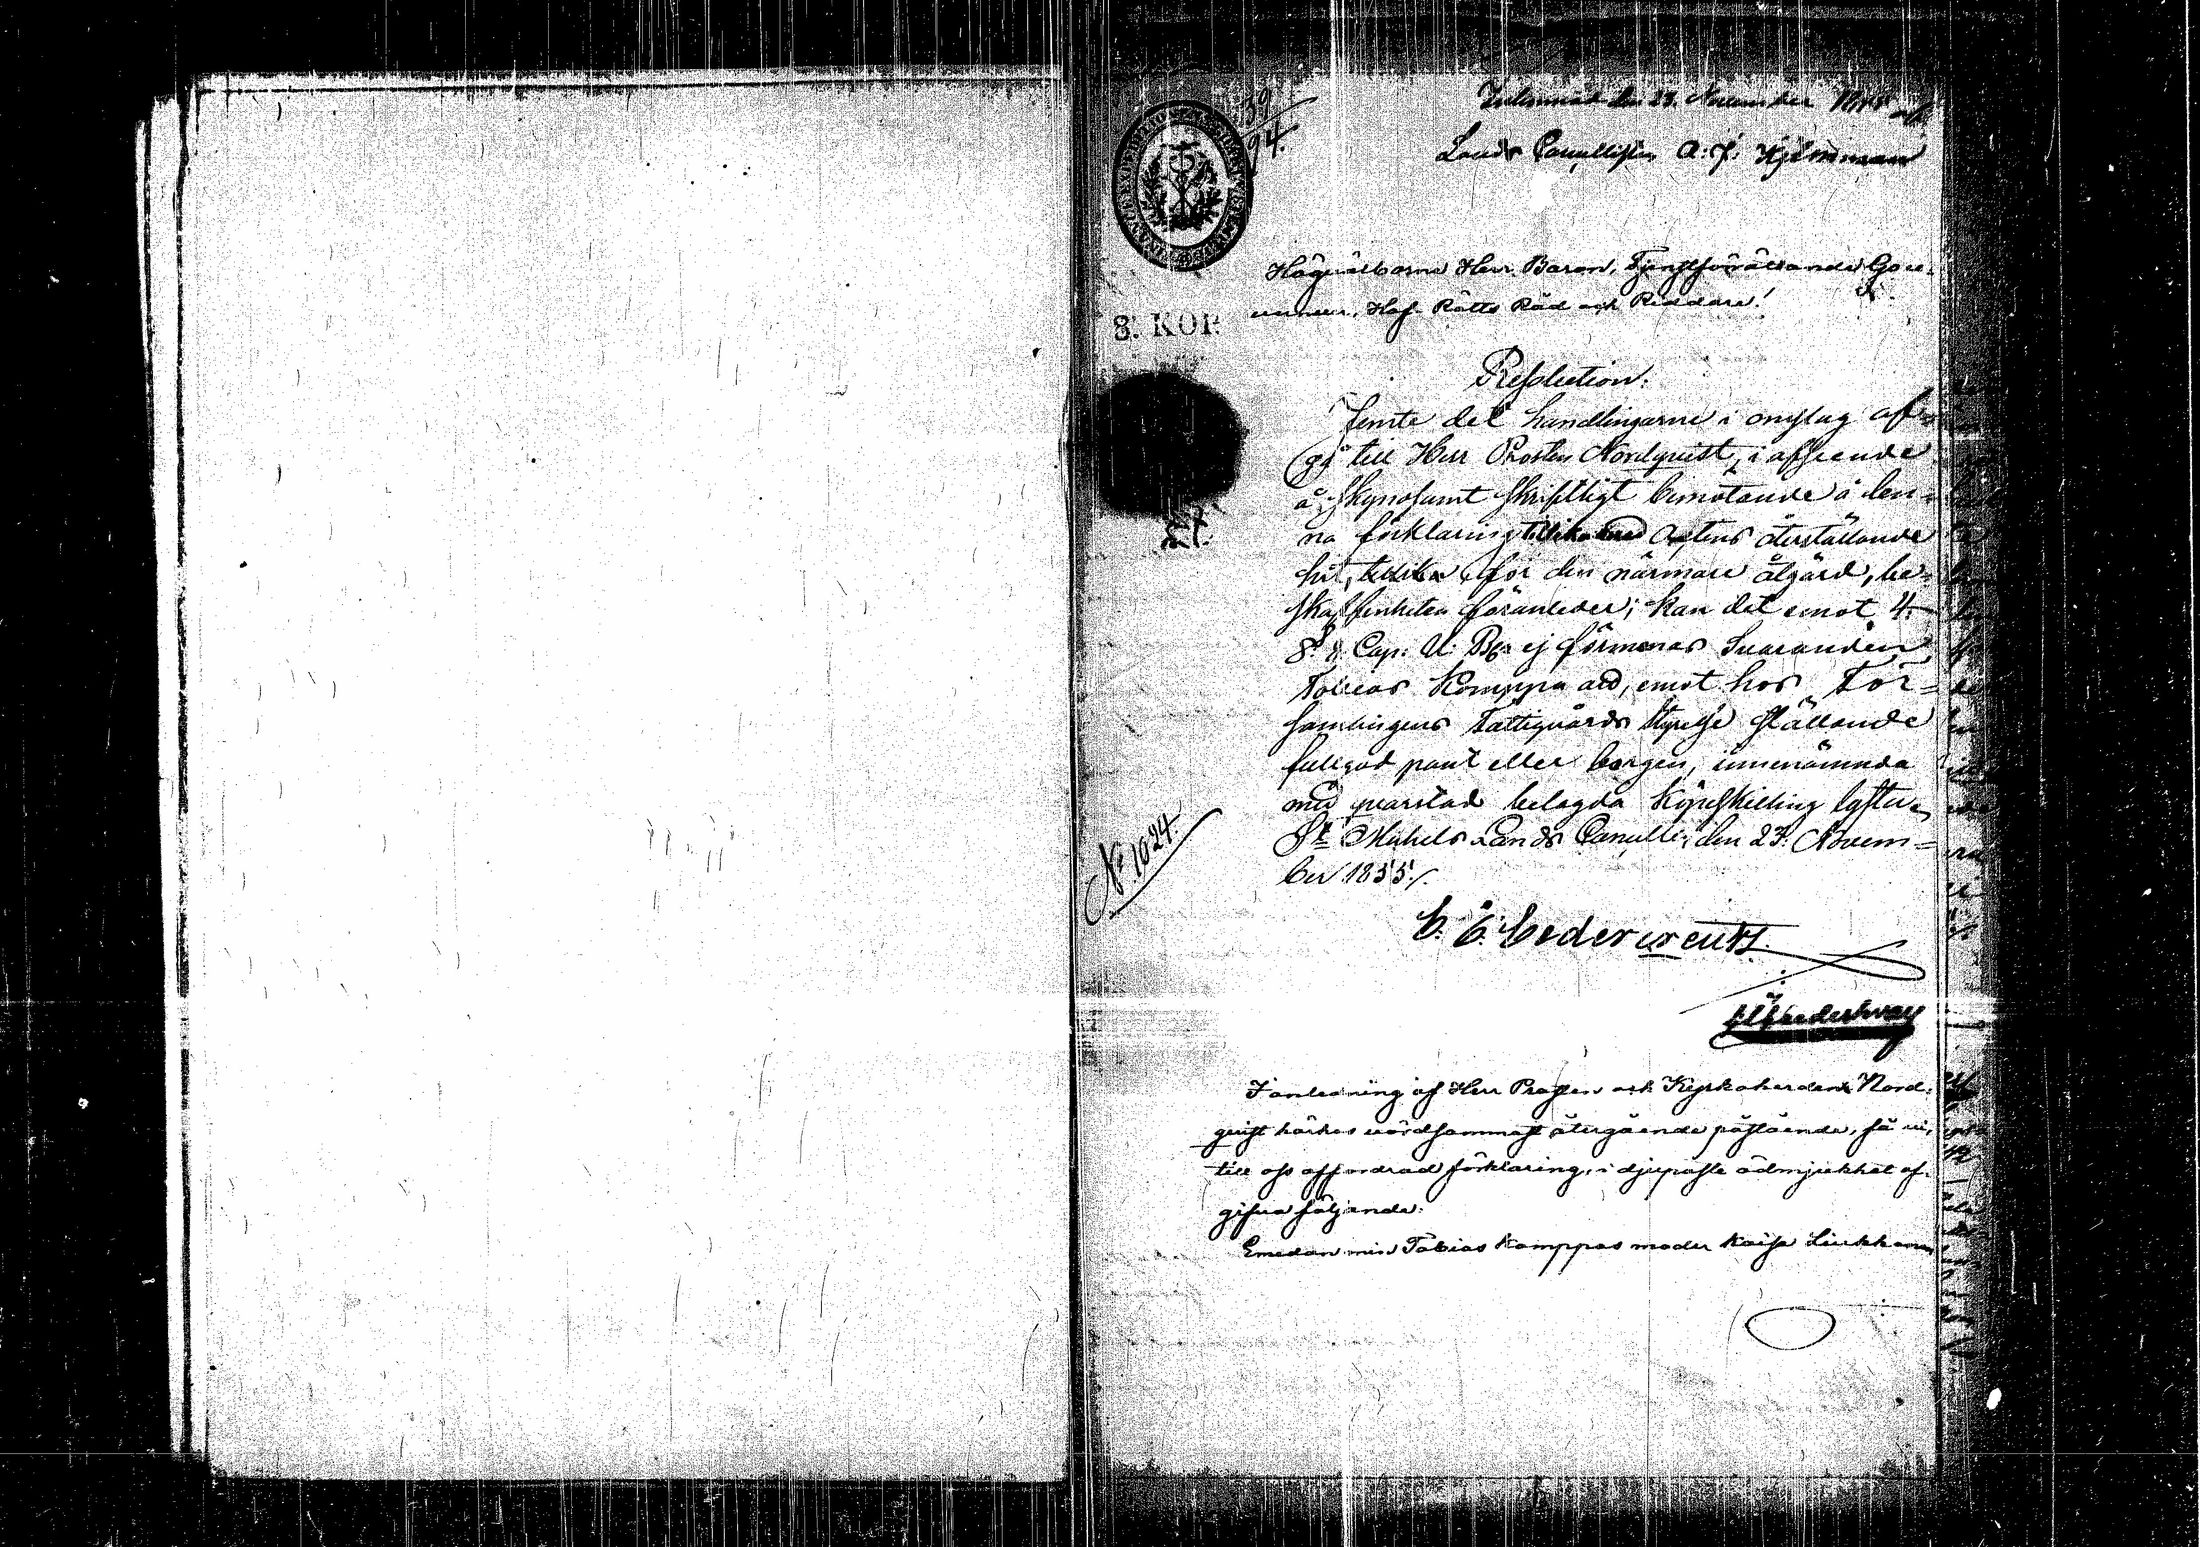 39
94.
Inlemnad den 23. November 1855 af
Lands Cancellisten A. F. Hjelmman
Högvälborne Herr Baron, Tjenstförrättande Gou-
verneur, Hof Rätts Råd och Riddare!
8. KOP.
Resolution.
Jemte det handlingarne i omslag af-
gå till Herr Prosten Nordqvist, i afseende
å skyndsamt skriftligt bemötande å den-
na förklaring Actens återställande
hit, för den närmare åtgärd, be-
skaffenheten föranleder; kan det emot 4
§. 8 Cap. U. B. ej förmenas Svaranden
Tobias Komppa att, emot hos För-
samlingens Fattigvårds Styrelse ställande
fullgod pant eller borgen, innenämnda
med qvarstad belagda Köpeskilling lyfta.
St Michels Lands Cancelli, den 23. Novem-
ber 1855./.
No 1024.
C. E. Cedercreutz.
I anledning af Herr Prosten och Kyrkoherden Nord-
qvist härhos vördsammast återgående påstående, få vi,
till oss affordrad förklaring, i djupaste ödmjukhet af-
gifva följande:
Emedan min Tobias Komppas moder Kaisa Liukkonen